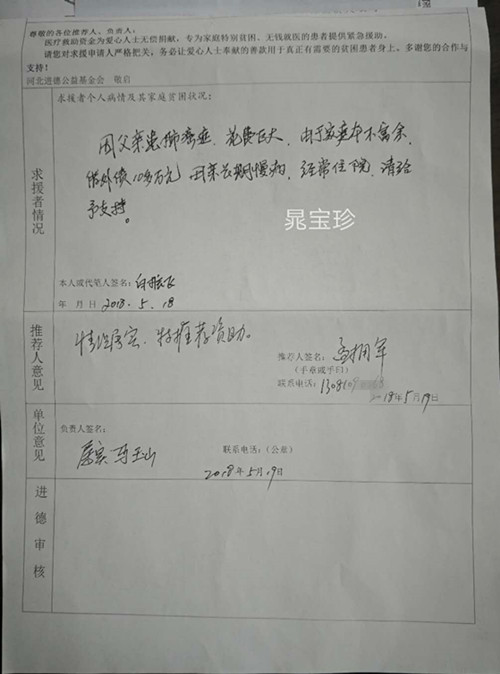 尊敬的各位推荐人、负责人：
医疗救助资金为爱心人士无偿捐献，专为家庭特别贫困、无钱就医的患者提供紧急援助。
请您对求援申请人严格把关，务必让爱心人士奉献的善款用于真正有需要的贫困患者身上。多谢您的合作与
支持！
河北进德公益基金会 敬启
求援者情况
求援者个人病情及其家庭贫困状况：
因父亲患肺癌症，花费巨大，由于家庭本不富余，
借外债10多万元，母亲长期慢病，经常住院，请给
予支持。
晁宝珍
本人或代笔人签名：
年 月 日 2018.5.18
推荐人意见
情况属实，特推荐资助。
推荐人签名：孟用军
（手章或手印）
联系电话：13081
2018年5月19日
单位意见
负责人签名：
属实 马玉山
联系电话：（公章）
2018年5月19日
进德审核